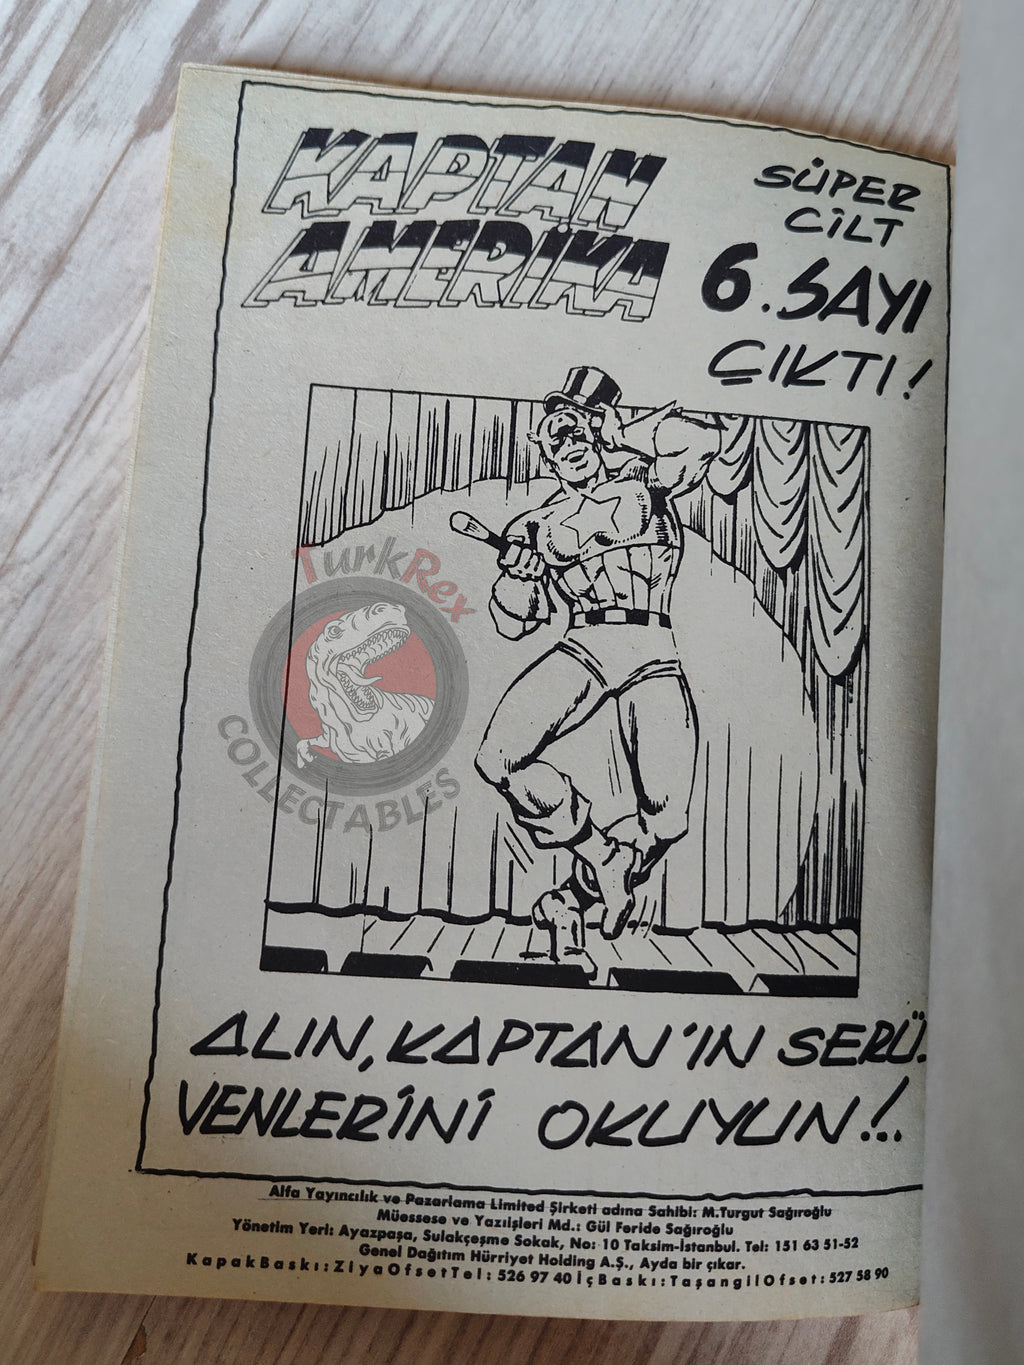 KAPTAN
AMERİKA
SÜPER
CİLT
6. SAYI
ÇIKTI!
TurkRex
COLLECTABLES
ALIN, KAPTAN'IN SERÜ-
VENLERİNİ OKUYUN!..
Alfa Yayıncılık ve Pazarlama Limited Şirketi adına Sahibi: M.Turgut Sağıroğlu
Müessese ve Yazıişleri Md.: Gül Feride Sağıroğlu
Yönetim Yeri: Ayazpaşa, Sulakçeşme Sokak, No: 10 Taksim-İstanbul. Tel: 151 63 51-52
Genel Dağıtım Hürriyet Holding A.Ş., Ayda bir çıkar.
Kapak Baskı: Ziya Ofset Tel: 526 97 40 İç Baskı: Taşangil Ofset: 527 58 90